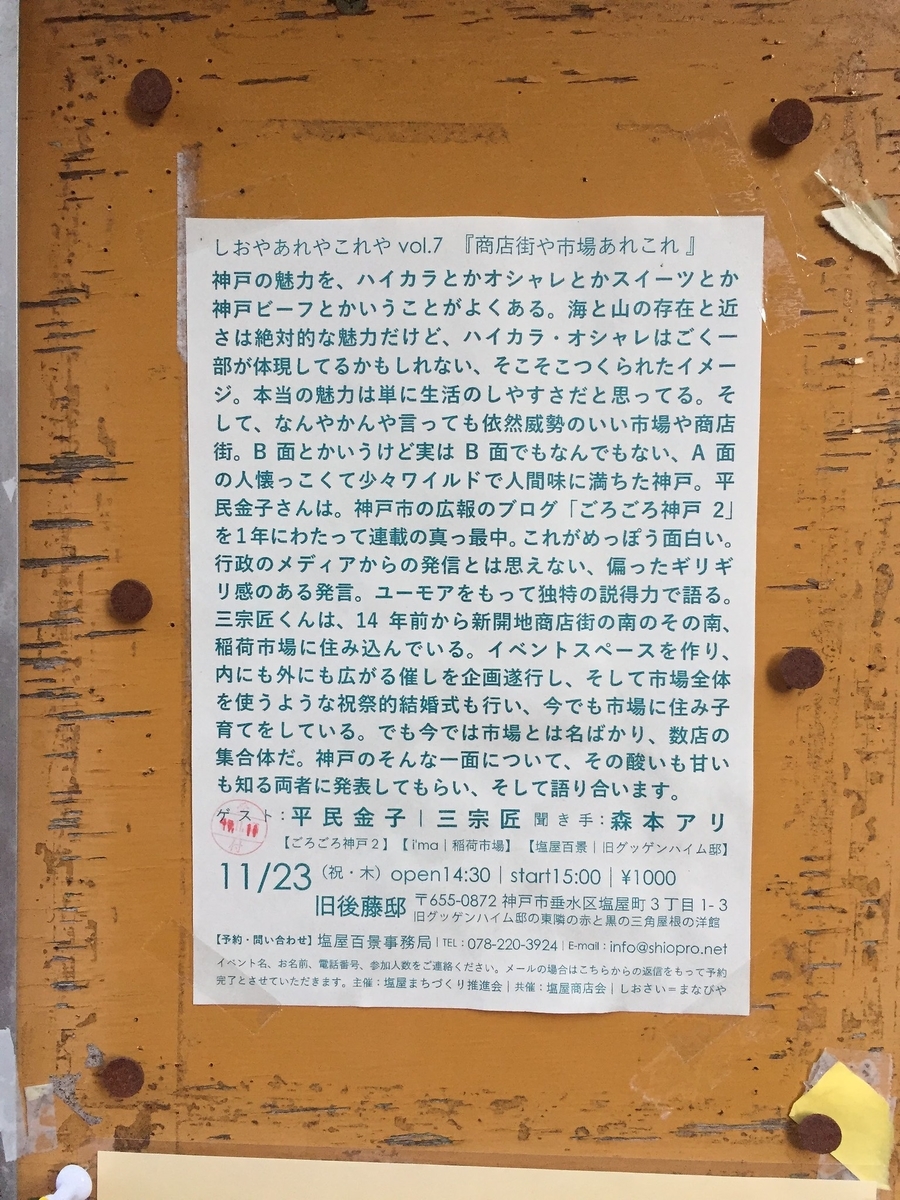 しおやあれやこれや vol.7 『商店街や市場あれこれ 』
神戸の魅力を、ハイカラとかオシャレとかスイーツとか
神戸ビーフとかいうことがよくある。海と山の存在と近
さは絶対的な魅力だけど、ハイカラ・オシャレはごく一
部が体現してるかもしれない、そこそこつくられたイメー
ジ。本当の魅力は単に生活のしやすさだと思ってる。そ
して、なんやかんや言っても依然威勢のいい市場や商店
街。B 面とかいうけど実は B 面でもなんでもない、A 面
の人懐っこくて少々ワイルドで人間味に満ちた神戸。平
民金子さんは。神戸市の広報のブログ「ごろごろ神戸 2」
を1年にわたって連載の真っ最中。これがめっぽう面白い。
行政のメディアからの発信とは思えない、偏ったギリギ
リ感のある発言。ユーモアをもって独特の説得力で語る。
三宗匠くんは、14 年前から新開地商店街の南のその南、
稲荷市場に住み込んでいる。イベントスペースを作り、
内にも外にも広がる催しを企画遂行し、そして市場全体
を使うような祝祭的結婚式も行い、今でも市場に住み子
育てをしている。でも今では市場とは名ばかり、数店の
集合体だ。神戸のそんな一面について、その酸いも甘い
も知る両者に発表してもらい、そして語り合います。
ゲスト:平民金子|三宗匠 聞き手:森本アリ
【ごろごろ神戸2】【i'ma|稲荷市場】【塩屋百景|旧グッゲンハイム邸】
11/23(祝・木)open14:30|start15:00|¥1000
旧後藤邸 〒655-0872 神戸市垂水区塩屋町3丁目1-3
旧グッゲンハイム邸の東隣の赤と黒の三角屋根の洋館
【予約・問い合わせ】塩屋百景事務局|TEL:078-220-3924|E-mail:info@shiopro.net
イベント名、お名前、電話番号、参加人数をご連絡ください。メールの場合はこちらからの返信をもって予約
完了とさせていただきます。主催:塩屋まちづくり推進会|共催:塩屋商店会|しおさい=まなびや